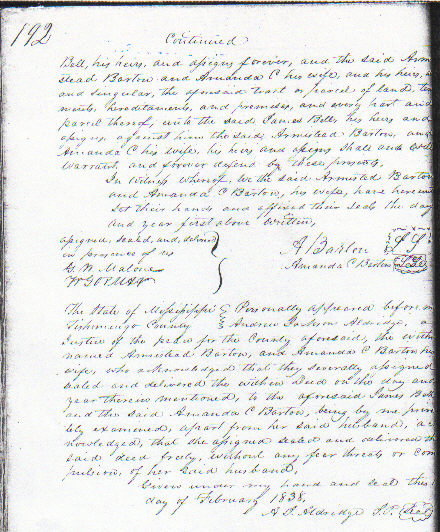 192
Continued
Bell, his heirs, and assigns forever, and the said Arm
stead Barton and Amanda C his wife, and his heirs,
and singular, the aforesaid tract or parcel of land. ten
ments, hereditaments, and premises, and every part and
parcel thereof, unto the said James Bell, his heirs and
assigns, against him the said, Armstead Barton, and
Amanda C his wife, his heirs and assigns shall and will
warrant, and forever defend by these presents,
In witness whereof, we the said Armsted Barton
and Amanda C Barton, his wife, have hereunto
set their hands and affixed their seals the day
and year first above written,
signed, sealed, and, delivered
in presence of us
A Barton
G. W. Malone
Amanda C Barton
The State of Mississippi
Tishomingo County
Personally appeared before m
Andrew Jackson Aldridge, a
Justice of the peace for the County aforesaid, the within
named Armstead Barton, and Amanda C Barton
wife, who acknowledged that they severally assigned
sealed and delivered the within Deed on the day and
year therein mentioned, to the aforesaid James Bell
and the said Amanda C Barton, being by me priva
tely examined, apart from her said husband, ac
knowledged, that she assigned sealed and delivered the
said deed freely, without any fear threats or com
pulsion, of her said husband,
Given under my hand and seal this
day of February 1838,
A J Aldridge J.P. (Seal)